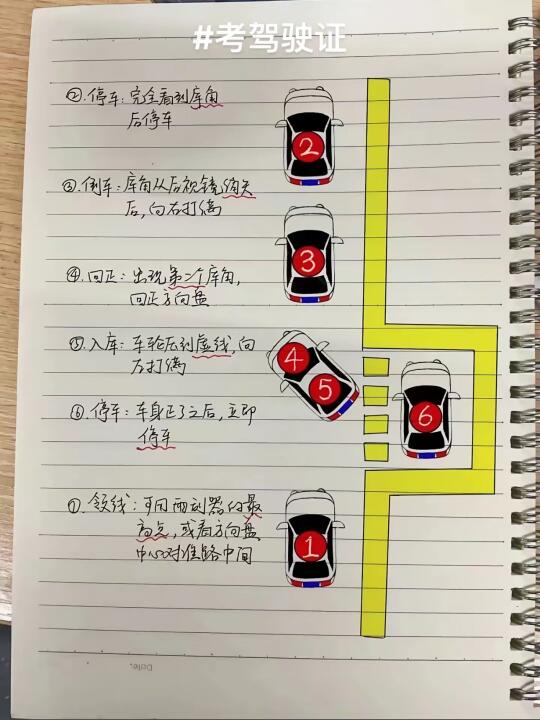 #考驾驶证
②.停车:完全看到库角
后停车
③.倒车:库角从后视镜消失
后,向右打满
④.回正:出现第二个库角,
回正方向盘
⑤.入库:车轮压到虚线,向
左打满
⑥.停车:车身正了之后,立即
停车
①.领线:可用雨刮器的最
高点,或看方向盘
中心对准路中间
2
3
4
5
6
1
Date.